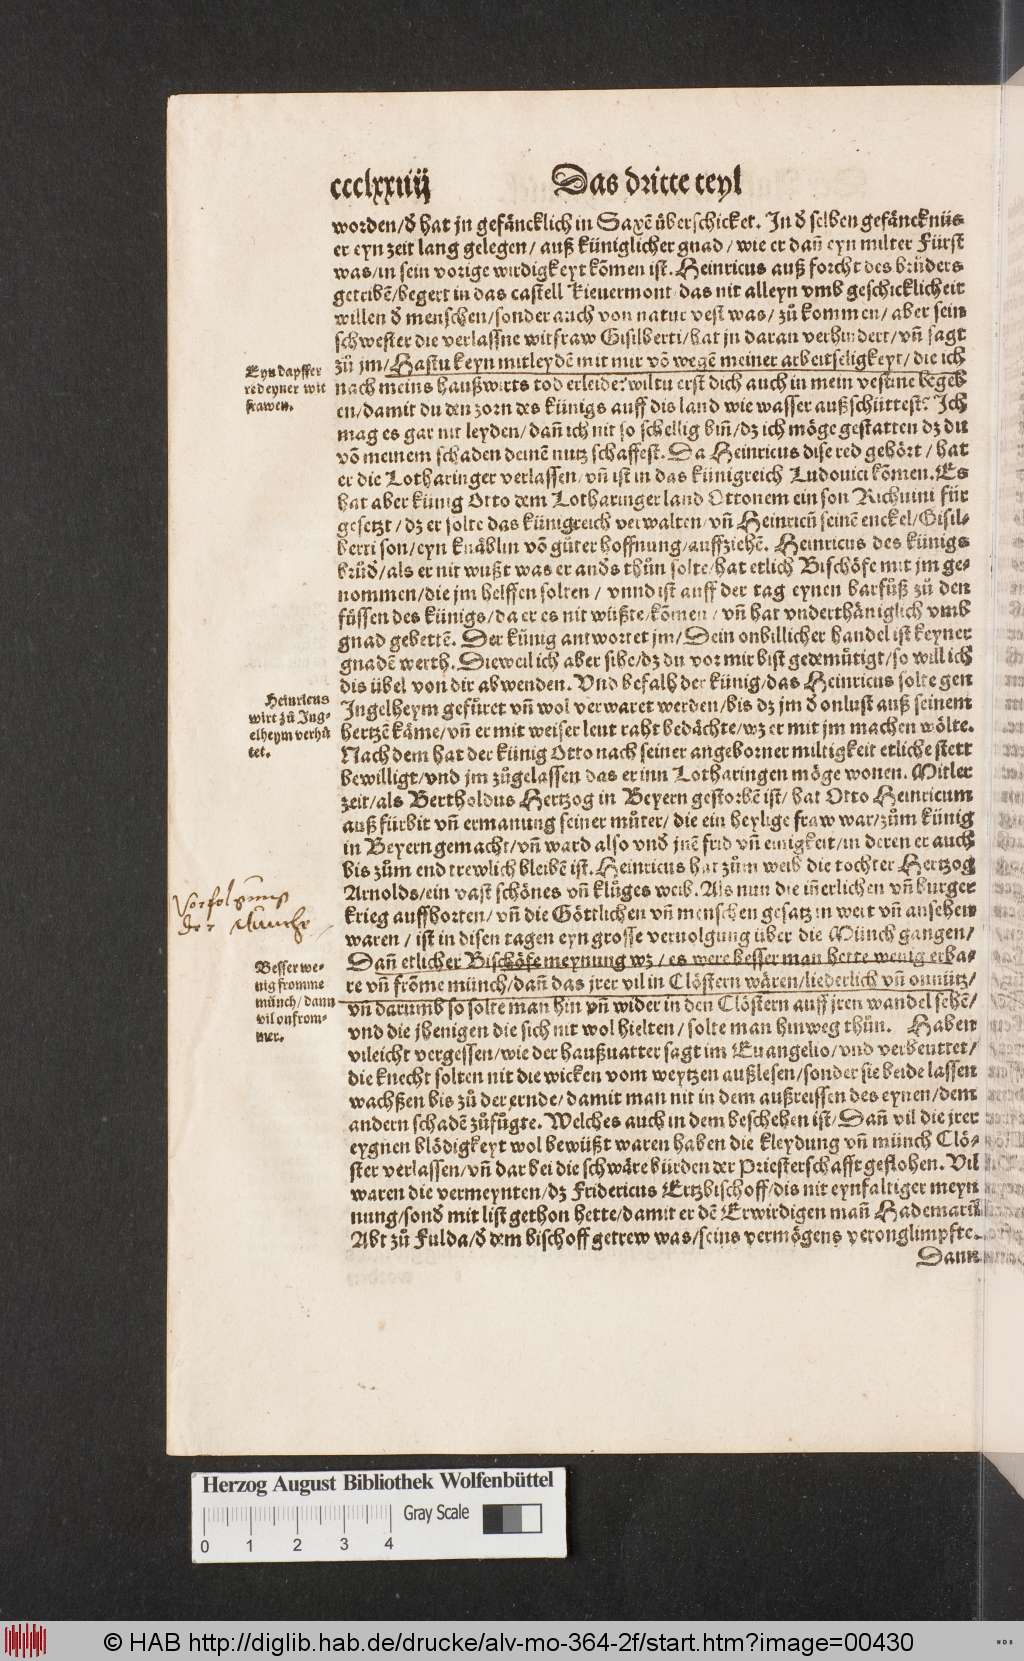 ccclxxiiij Das dritte teyl
worden/đ hat jn gefäncklich in Saxẽ überschicket. In đ selben gefäncknüs
er eyn zeit lang gelegen/ auß küniglicher gnad/ wie er dañ eyn milter Fürst
was/in sein vorige wirdigkeyt kõmen ist. Heinricus auß forcht des brůders
getribẽ/begert in das castell Kieuermont/das nit alleyn vmb geschicklicheit
willen đ menschen/sonder auch von natur vest was/ zů kommen/ aber sein
schwester die verlassne witfraw Gisilberti/hat jn daran verhindert/vñ sagt
zů jm/Hastu keyn mitleydẽ mit mir võ wegẽ meiner arbeitseligkeyt/ die ich
nach meins haußwirts tod erleide? wiltu erst dich auch in mein vestine begeb
en/damit du den zorn des künigs auff dis land wie wasser außschüttest? Ich
mag es gar nit leyden/ dañ ich nit so schellig biñ/dz ich möge gestatten dz du
võ meinem schaden deinẽ nutz schaffest. Da Heinricus dise red gehört/ hat
er die Lotharinger verlassen/vñ ist in das künigreich Ludouici kõmen. Es
hat aber künig Otto dem Lotharinger land Ottonem ein son Richuini für
gesetzt/dz er solte das künigreich verwalten/vñ Heinricũ seinẽ enckel/Gisil-
berti son/eyn knäblin võ gůter hoffnung/auffziehẽ. Heinricus des künigs
brůđ/als er nit wußt was er anđs thůn solte/hat etlich Bischöfe mit jm ge-
nommen/die jm helffen solten/ vnnd ist auff der tag eynen barfůß zů den
füssen des künigs/da er es nit wüßte/kõmen/ vñ hat vnderthäniglich vmb
gnad gebettẽ. Der künig antwortet jm/ Dein onbillicher handel ist keyner
gnadẽ werth. Dieweil ich aber sihe/dz du vor mir bist gedemütigt/so will ich
dis übel von dir abwenden. Vnd befalh der künig/das Heinricus solte gen
Ingelheym gefüret vñ wol verwaret werden/bis dz jm đ onlust auß seinem
hertzẽ käme/vñ er mit weiser leut raht bedächte/wz er mit jm machen wölte.
Nach dem hat der künig Otto nach seiner angeborner miltigkeit etliche stett
bewilligt/vnd jm zůgelassen das er inn Lotharingen möge wonen. Mitler
zeit/als Bertholdus Hertzog in Beyern gestorbẽ ist/ hat Otto Heinricum
auß fürbit vñ ermanung seiner můter/ die ein heylige fraw war/zům künig
in Beyern gemacht/vñ ward also vnđ jnẽ frid vñ einigkeit/in deren er auch
bis zům end trewlich bleibẽ ist. Heinricus hat zům weib die tochter Hertzog
Arnolds/ein vast schönes vñ klůges weib. Als nun die iñerlichen vñ burger
krieg auffhorten/ vñ die Göttlichen vñ menschen gesatz in wert vñ ansehen
waren/ ist in disen tagen eyn grosse veruolgung über die Münch gangen/
Dañ etlicher Bischöfe meynung wz/ es were besser man hette wenig erba-
re vñ frõme münch/dañ das jrer vil in Clöstern wären/liederlich vñ onnütz/
vñ darumb so solte man hin vñ wider in den Clöstern auff jren wandel sehẽ/
vnd die jhenigen die sich nit wol hielten/ solte man hinweg thůn. Haben
vileicht vergessen/wie der haußuatter sagt im Euangelio/vnd verbeuttet/
die knecht solten nit die wicken vom weytzen außlesen/sonder sie beide lassen
wachßen bis zů der ernde/damit man nit in dem außreissen des eynen/dem
andern schadẽ zůfügte. Welches auch in dem beschehen ist/Dañ vil die jrer
eygnen blödigkeyt wol bewüßt waren haben die kleydung vñ münch Clö-
ster verlassen/vñ dar bei die schwäre bürden der Priesterschafft geflohen. Vil
waren die vermeynten/dz Fridericus Ertzbischoff/dis nit eynfaltiger meyn
nung/sonđ mit list gethon hette/damit er dẽ Erwirdigen mañ Hademarũ
Abt zů Fulda/đ dem bischoff getrew was/seins vermögens veronglimpfte.
Dann
Eyn dapffer
red eyner wit
frawen.
Heinricus
wirt zů Ing-
elheym verhü
tet.
Vorfolgung
der Munche
Besser we-
nig fromme
münch/dann
vil onfrom-
mer.
Herzog August Bibliothek Wolfenbüttel
Gray Scale
0 1 2 3 4
© HAB http://diglib.hab.de/drucke/alv-mo-364-2f/start.htm?image=00430